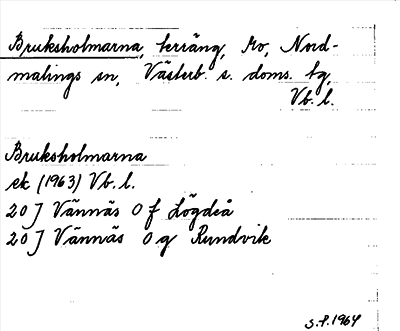 Bruksholmarna, terräng, Mo, Nord-
malings sn, Västerb. s. doms. tg,
Vb. l.
Bruksholmarna
ek (1963) Vb. l.
20 J Vännäs 0 f Lögdeå
20 J Vännäs 0 g Rundvik
S.F. 1964